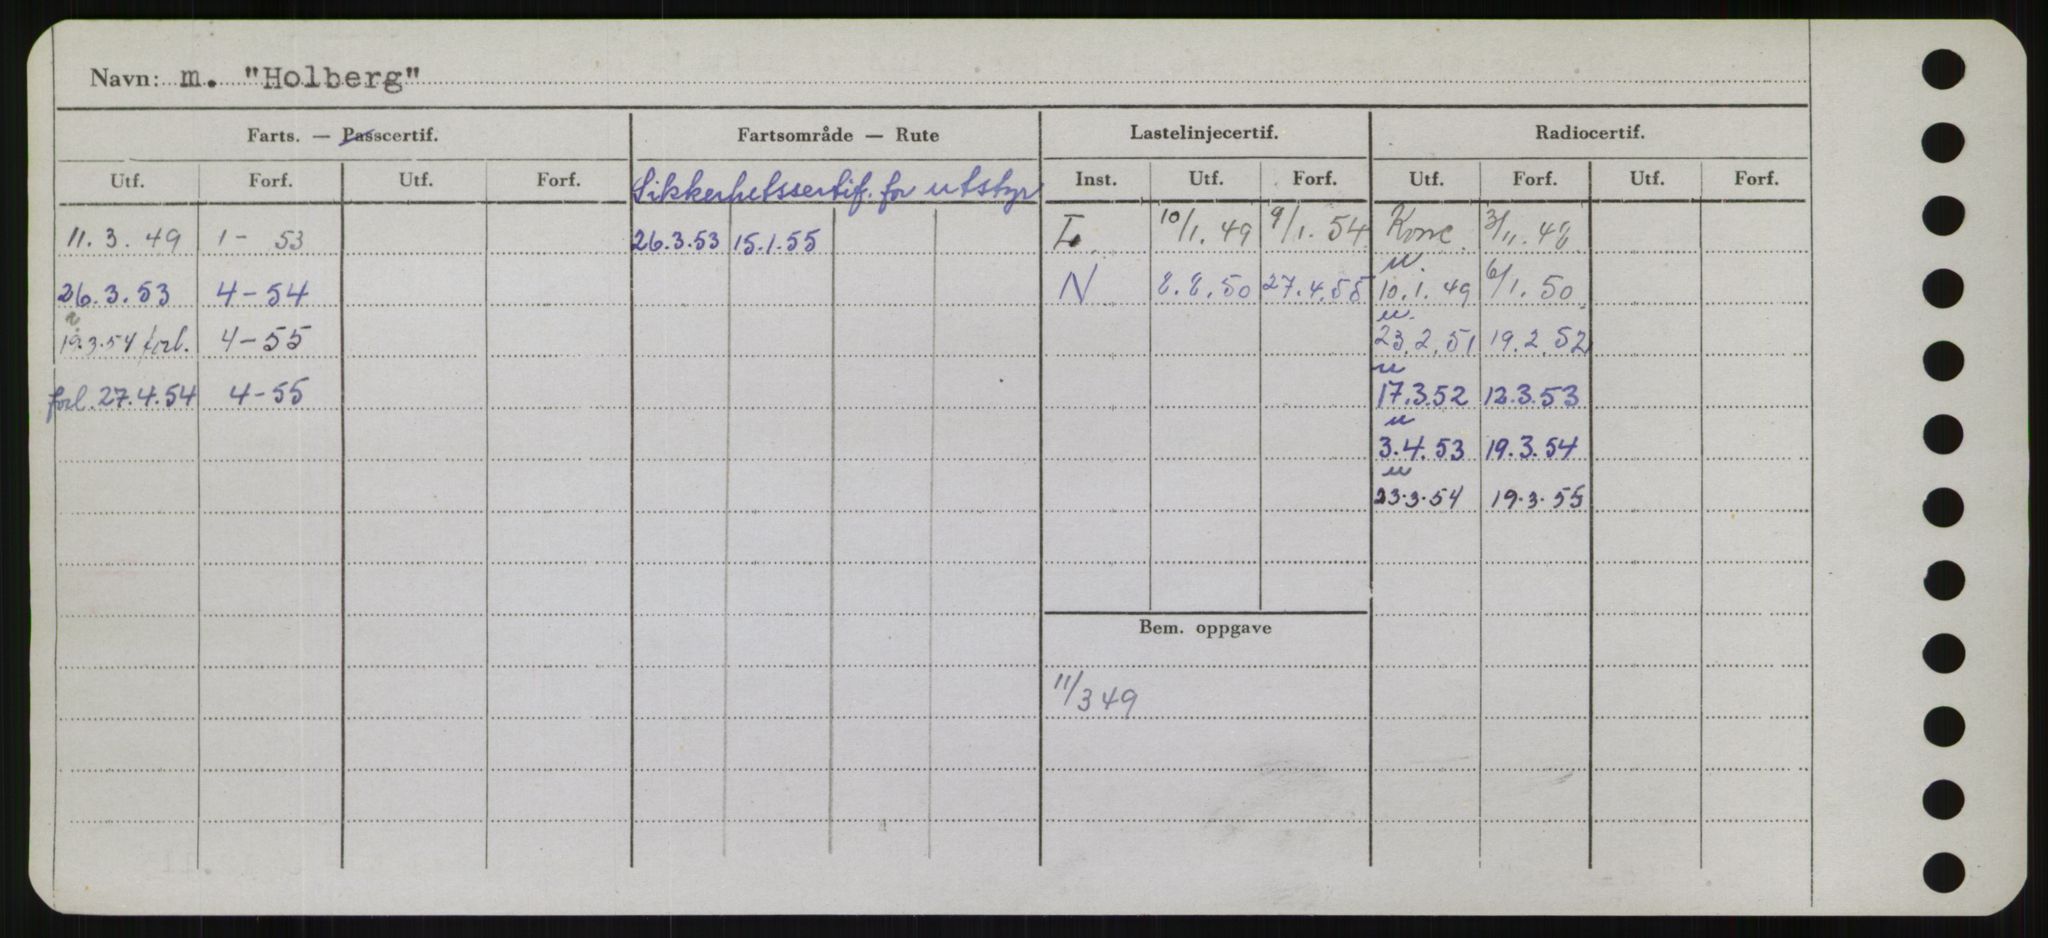 Navn: m. "Holberg"
Farts. — Passcertif. Fartsområde — Rute Lastelinjecertif. Radiocertif.
Utf. Forf. Utf. Forf. Sikkerhetssertif. for utstyr Inst. Utf. Forf. Utf. Forf. Utf. Forf.
11.3.49 1- 53 26.3.53 15.1.55 L 10/1.49 9/1.54 3/11.48
26.3.53 4-54 N 8.8.50 27.4.55 10.1.49 6/1.50
19.3.54 forl. 4-55 23.2.51 19.2.52
forl. 27.4.54 4-55 17.3.52 12.3.53
3.4.53 19.3.54
23.3.54 19.3.55
Bem. oppgave
11/3 49